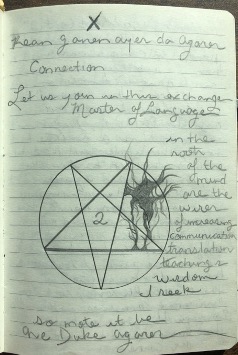 X
Ream ganem ayer da Agares
Connection
Let us join in this exchange
Master of Languages
in the
roots
of the
mind
are the
wires
of increasing
communication
translation
teachings
wisdom
I seek
2
so mote it be
the Duke Agares